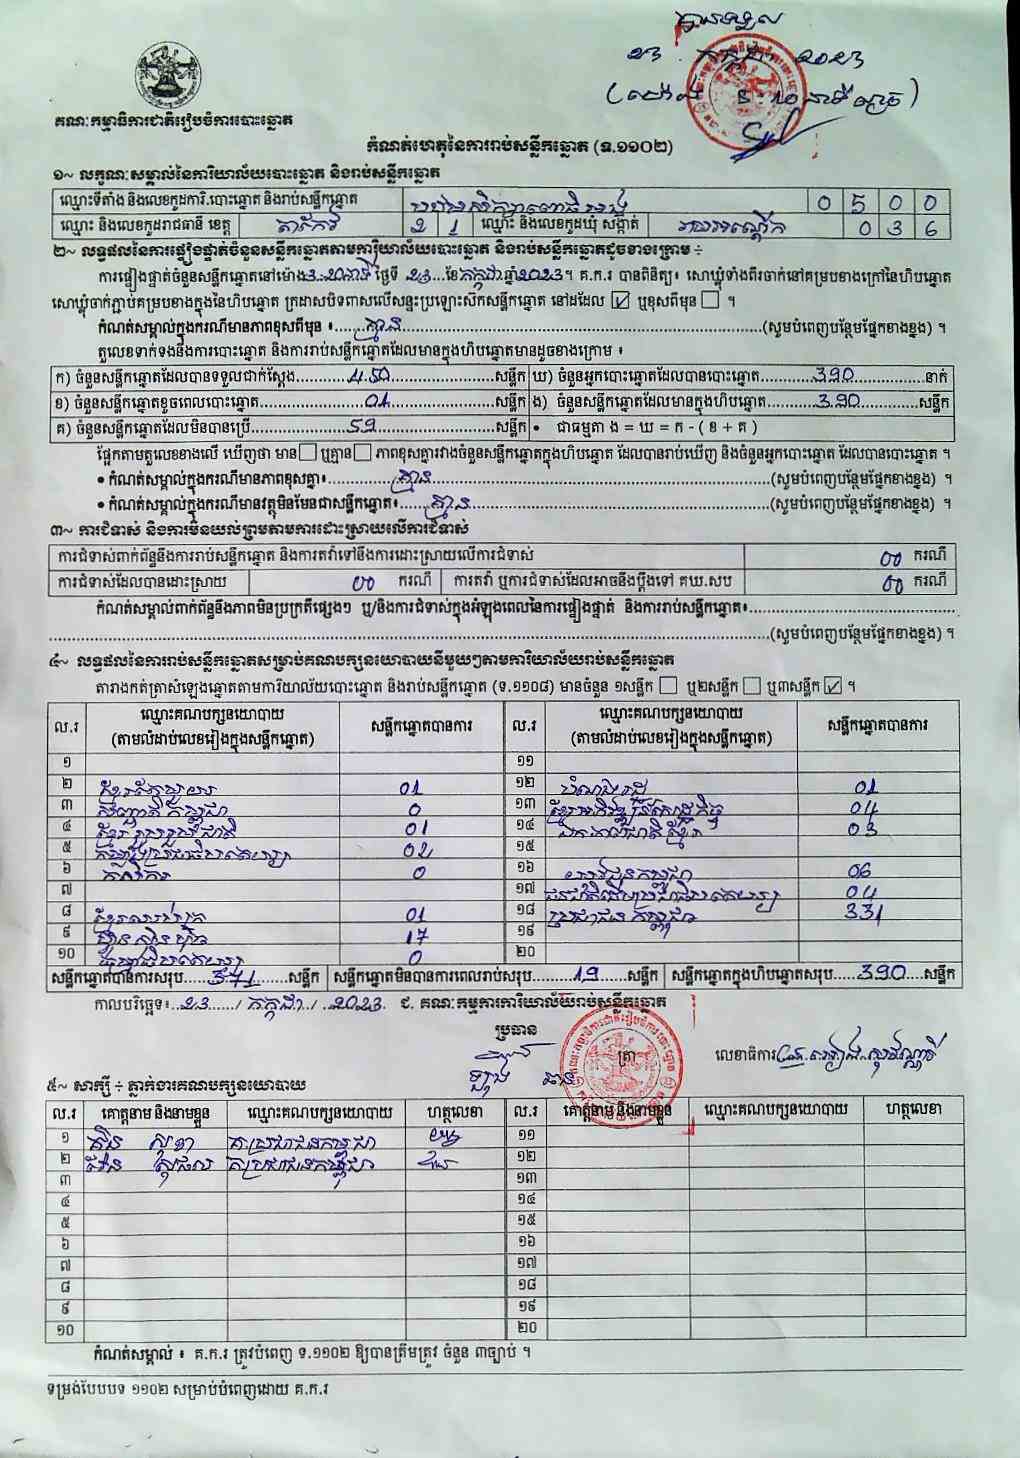 បានទទួល
២៣ កក្កដា ២០២៣
គណៈកម្មាធិការជាតិរៀបចំការបោះឆ្នោត
កំណត់ហេតុនៃការរាប់សន្លឹកឆ្នោត (ទ.១១០២)
១~ លក្ខណៈសម្គាល់នៃការិយាល័យបោះឆ្នោត និងរាប់សន្លឹកឆ្នោត
ឈ្មោះទីតាំង និងលេខកូដការិ.បោះឆ្នោត និងរាប់សន្លឹកឆ្នោត 0 5 0 0
ឈ្មោះ និងលេខកូដរាជធានី ខេត្ត តាកែវ 2 1 ឈ្មោះ និងលេខកូដឃុំ សង្កាត់ រមេញ 0 3 6
២~ លទ្ធផលនៃការផ្ទៀងផ្ទាត់ចំនួនសន្លឹកឆ្នោតតាមការិយាល័យបោះឆ្នោត និងរាប់សន្លឹកឆ្នោតដូចខាងក្រោម ÷
ការផ្ទៀងផ្ទាត់ចំនួនសន្លឹកឆ្នោតនៅម៉ោង ថ្ងៃទី 23 នៃ កក្កដា ឆ្នាំ 2023 ។ គ.ក.រ បានពិនិត្យ៖ សោឃ្លុំទាំងពីរចាក់នៅគម្របខាងក្រៅនៃហិបឆ្នោត
សោឃ្លុំចាក់ភ្ជាប់គម្របខាងក្នុងនៃហិបឆ្នោត ក្រដាសបិទពាសលើសន្ទះប្រឡោះសឹកសន្លឹកឆ្នោត នៅដដែល ☑ ឬខុសពីមុន ☐ ។
កំណត់សម្គាល់ក្នុងករណីមានភាពខុសពីមុន ៖ គ្មាន (សូមបំពេញបន្ថែមផ្នែកខាងខ្នង) ។
តួលេខទាក់ទងនឹងការបោះឆ្នោត និងការរាប់សន្លឹកឆ្នោតដែលមានក្នុងហិបឆ្នោតមានដូចខាងក្រោម ៖
ក) ចំនួនសន្លឹកឆ្នោតដែលបានទទួលជាក់ស្តែង 450 សន្លឹក ឃ) ចំនួនអ្នកបោះឆ្នោតដែលបានបោះឆ្នោត 390 នាក់
ខ) ចំនួនសន្លឹកឆ្នោតខូចពេលបោះឆ្នោត 01 សន្លឹក ង) ចំនួនសន្លឹកឆ្នោតដែលមានក្នុងហិបឆ្នោត 390 សន្លឹក
គ) ចំនួនសន្លឹកឆ្នោតដែលមិនបានប្រើ 59 សន្លឹក • ជាធម្មតា ង = ឃ = ក - ( ខ + គ )
ផ្អែកតាមតួលេខខាងលើ ឃើញថា មាន ☐ ឬគ្មាន ☐ ភាពខុសគ្នារវាងចំនួនសន្លឹកឆ្នោតក្នុងហិបឆ្នោត ដែលបានរាប់ឃើញ និងចំនួនអ្នកបោះឆ្នោត ដែលបានបោះឆ្នោត ។
• កំណត់សម្គាល់ក្នុងករណីមានភាពខុសគ្នា៖ គ្មាន (សូមបំពេញបន្ថែមផ្នែកខាងខ្នង) ។
• កំណត់សម្គាល់ក្នុងករណីមានវត្ថុមិនមែនជាសន្លឹកឆ្នោត៖ គ្មាន (សូមបំពេញបន្ថែមផ្នែកខាងខ្នង) ។
៣~ ការជំទាស់ និងការមិនយល់ព្រមតាមការដោះស្រាយលើការជំទាស់
ការជំទាស់ពាក់ព័ន្ធនឹងការរាប់សន្លឹកឆ្នោត និងការតវ៉ាទៅនឹងការដោះស្រាយលើការជំទាស់ 00 ករណី
ការជំទាស់ដែលបានដោះស្រាយ 00 ករណី ការតវ៉ា ឬការជំទាស់ដែលអាចនឹងប្តឹងទៅ គឃ.សប 00 ករណី
កំណត់សម្គាល់ពាក់ព័ន្ធនឹងភាពមិនប្រក្រតីផ្សេងៗ ឬ/និងការជំទាស់ក្នុងអំឡុងពេលនៃការផ្ទៀងផ្ទាត់ និងការរាប់សន្លឹកឆ្នោត៖
(សូមបំពេញបន្ថែមផ្នែកខាងខ្នង) ។
៤~ លទ្ធផលនៃការរាប់សន្លឹកឆ្នោតសម្រាប់គណបក្សនយោបាយនីមួយៗតាមការិយាល័យរាប់សន្លឹកឆ្នោត
តារាងកត់ត្រាសំឡេងឆ្នោតតាមការិយាល័យបោះឆ្នោត និងរាប់សន្លឹកឆ្នោត (ទ.១១០៨) មានចំនួន ១សន្លឹក ☐ ឬ២សន្លឹក ☐ ឬ៣សន្លឹក ☑ ។
ល.រ ឈ្មោះគណបក្សនយោបាយ (តាមលំដាប់លេខរៀងក្នុងសន្លឹកឆ្នោត) សន្លឹកឆ្នោតបានការ ល.រ ឈ្មោះគណបក្សនយោបាយ (តាមលំដាប់លេខរៀងក្នុងសន្លឹកឆ្នោត) សន្លឹកឆ្នោតបានការ
១ ១១
២ 01 ១២ 01
៣ សញ្ជាតិកម្ពុជា 0 ១៣ ខ្មែរអភិវឌ្ឍន៍សេដ្ឋកិច្ច 04
៤ ខ្មែររួបរួមជាតិ 01 ១៤ ឯកភាពជាតិខ្មែរ 03
៥ កម្លាំងប្រជាធិបតេយ្យ 02 ១៥
៦ កសិករ 0 ១៦ យុវជនកម្ពុជា 06
៧ ១៧ ជនជាតិដើមប្រជាធិបតេយ្យ 04
៨ 01 ១៨ ប្រជាជនកម្ពុជា 331
៩ ហ៊្វុនស៊ិនប៉ិច 17 ១៩
១០ ធម្មាធិបតេយ្យ 0 ២០
សន្លឹកឆ្នោតបានការសរុប 371 សន្លឹក សន្លឹកឆ្នោតមិនបានការពេលរាប់សរុប 19 សន្លឹក សន្លឹកឆ្នោតក្នុងហិបឆ្នោតសរុប 390 សន្លឹក
កាលបរិច្ឆេទ៖ 23 / កក្កដា / 2023 ជ. គណៈកម្មការការិយាល័យរាប់សន្លឹកឆ្នោត
ប្រធាន
ត្រា លេខាធិការ
៥~ សាក្សី ÷ ភ្នាក់ងារគណបក្សនយោបាយ
ល.រ គោត្តនាម និងនាមខ្លួន ឈ្មោះគណបក្សនយោបាយ ហត្ថលេខា ល.រ គោត្តនាម និងនាមខ្លួន ឈ្មោះគណបក្សនយោបាយ ហត្ថលេខា
១ គ.ប្រជាជនកម្ពុជា ១១
២ គ.ប្រជាជនកម្ពុជា ១២
៣ ១៣
៤ ១៤
៥ ១៥
៦ ១៦
៧ ១៧
៨ ១៨
៩ ១៩
១០ ២០
កំណត់សម្គាល់ ៖ គ.ក.រ ត្រូវបំពេញ ទ.១១០២ ឱ្យបានត្រឹមត្រូវ ចំនួន ៣ច្បាប់ ។
ទម្រង់បែបបទ ១១០២ សម្រាប់បំពេញដោយ គ.ក.រ